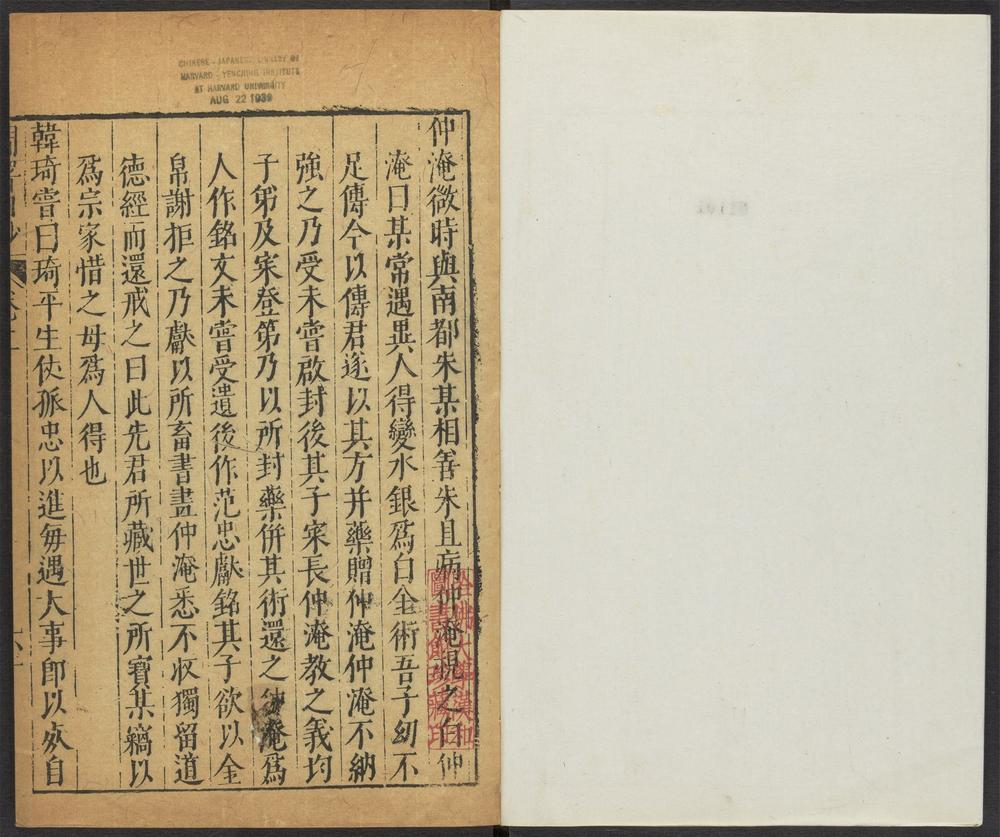 CHINESE - JAPANESE LIBRARY OF
HARVARD - YENCHING INSTITUTE
AT HARVARD UNIVERSITY
AUG 22 1939
仲淹微時與南都朱某相善朱且病仲淹視之白仲
淹曰某常遇異人得變水銀爲白金術吾子幼不
足傳今以傳君遂以其方并藥贈仲淹仲淹不納
強之乃受未嘗啟封後其子寀長仲淹教之義均
子弟及寀登第乃以所封藥併其術還之仲淹爲
人作銘文未嘗受遺後作范忠獻銘其子欲以金
帛謝拒之乃獻以所畜書畫仲淹悉不收獨留道
德經而還戒之曰此先君所藏世之所寶某竊以
爲宗家惜之毋爲人得也
韓琦嘗曰琦平生仗孤忠以進每遇大事卽以死自
哈佛大學漢和
圖書館珍藏印